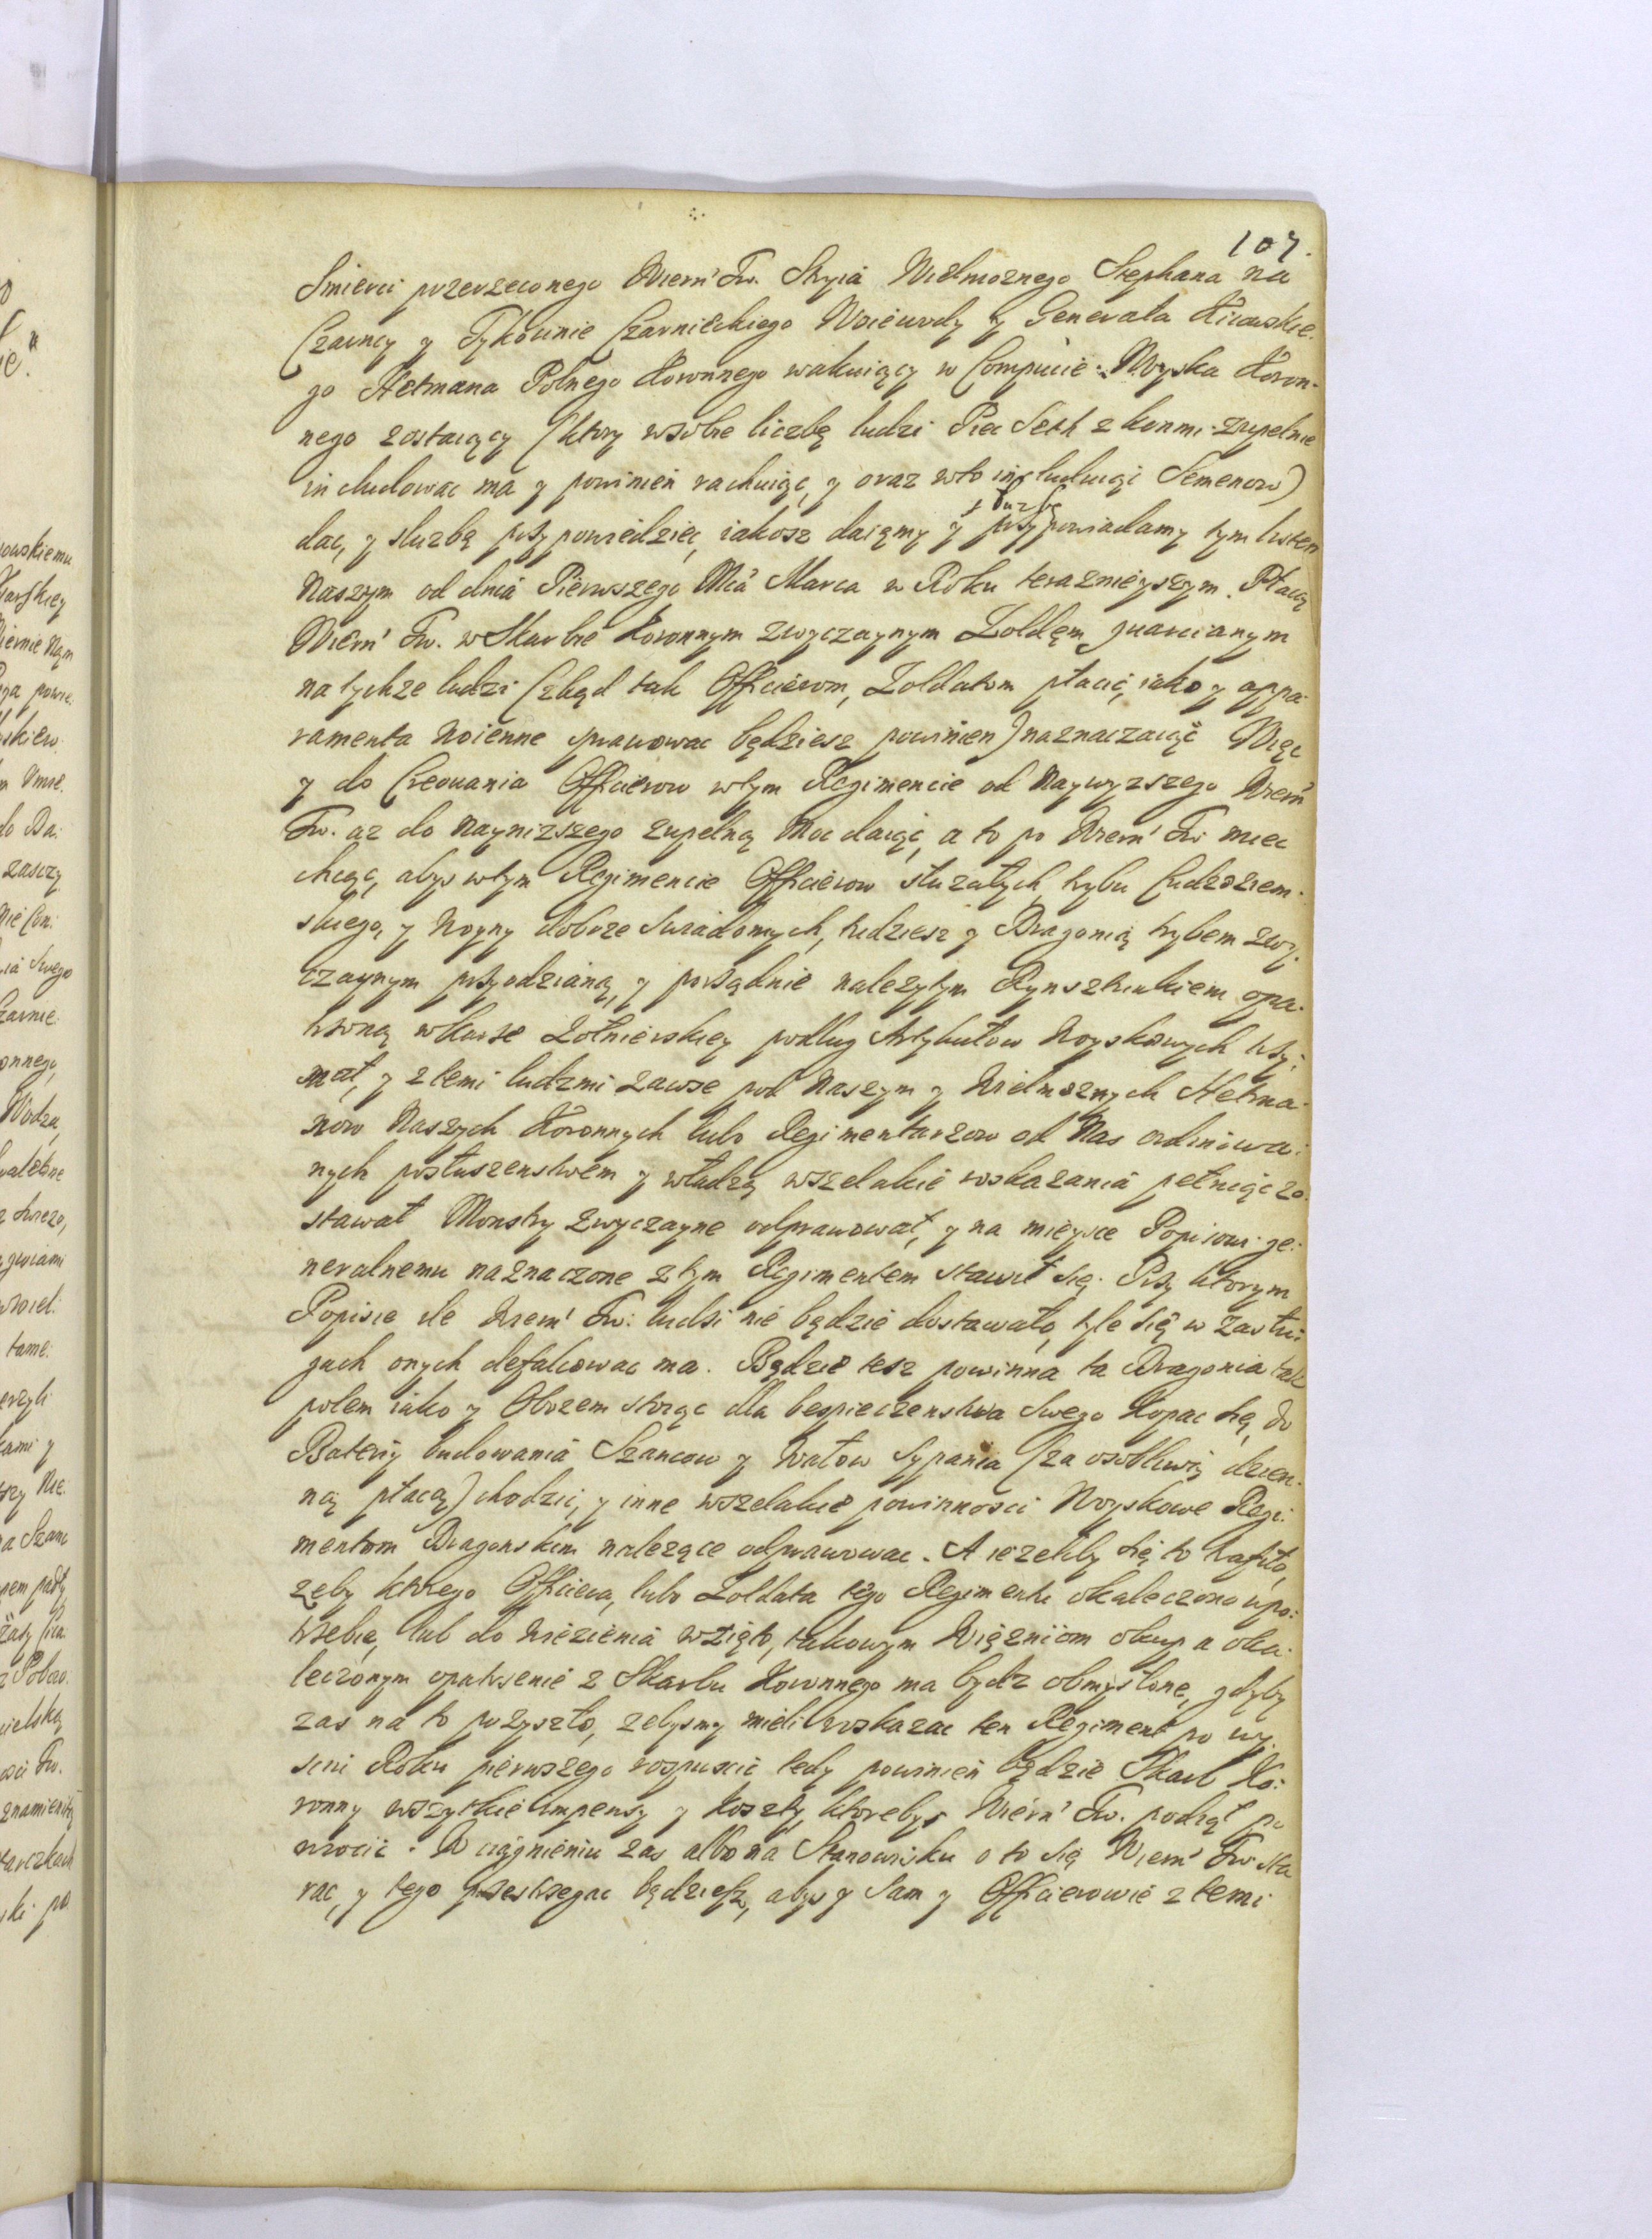 107.
Smierci przerzeconego Wiern' Tw. Stryia Wielmoznego Stephana na
Czarncy y Tykocinie Czarnieckiego Woiewody y Generała Kiiowskie-
go Hetmana Polnego Koronnego wakuiący w Compucie Woyska Koron-
nego zostaiący (ktory wsobie liczbę ludzi Piec Seth z konmi zupełnie
includowac ma y powinien rachuiąc, y oraz wto includuiąc Semenow)
dac, y sluzbą przypowiedziec, iakosz daięmy y służbę przypowiadamy tym listem
Naszym od dnia Pierwszego Mca Marca w Roku teraznieyszym. Płacą
Wiern' Tw. w Skarbie Koronnym zwyczaynym Zoldęm quarcianym
na tychze ludzi (zkąd tak Officierom, Zoldatom płacić, iako y appa-
ramenta woienne sprawowac będziesz powinien) naznaczaiąc Więc
y do Creowania Officierow wtym Regimencie od Naywyzszego Wiern'
Tw. az do Nayniższego zupełną Moc daiąc, a to po Wiern' Tw miec
chcąc, abys wtym Regimencie Officierow służałych, trybu Cudzoziem-
skiego, y Woyny dobrze Swiadomych, tudziesz y Dragonią trybem zwy-
czaynym przyodzianą, y porządnie nalezytym Rynsztukiem opa-
trzoną wkarze Zołnierskiey podług Artykułow Woyskowych trzy-
mał, y z temi ludzmi zawse pod Naszym y Wielmoznych Hetma-
now Naszych Koronnych lubo Regimentarzow od Nas ordinowa-
nych posłuszenstwem y władzą wszelakie roskazania pełniąc zo-
stawał Monstry zwyczayne odprawował, y na mieysce Popisowi ge-
neralnemu naznaczone z tym Regimentem stawił się. Przy ktorym
Popisie ile Wiern' Tw: ludzi nie będzie dostawało, tyle się w Zasłu-
gach onych defalcowac ma. Będzie tesz powinna ta Dragonia tak
polem iako y Obozem stoiąc dla bespieczenstwa Swego Kopac się, do
Bateriy budowania Szancow y Wałow Sypania (za osobliwą dzien-
ną płacą) chodzic, y inne wszelakie powinnosci Woyskowe Regi-
mentom Dragonskim nalezące odprawowac. A iezeliby się to trafiło,
zeby ktorego Officiera, lubo Zoldata tego Regimentu okaleczono wpo-
trzebie, lub do Wiezienia wzięto, takowym Więzniom okup a oka-
leczonym opatrzenie z Skarbu Koronnego ma bydz obmyslone, gdyby
zas na to przyszło, zebysmy mieli roskazac ten Regiment po wy-
sciu Roku pierwszego rospuscic tedy powinien będzie Skarb Ko-
ronny wszytkie Impensy y koszty, ktorebys Wiern' Tw. podiął po
wrocic. W ciągnieniu zas albo na Stanowisku o to się Wiern' Tw sta
rac, y tego przestrzegac będziesz, abys y Sam y Officierowie z temi